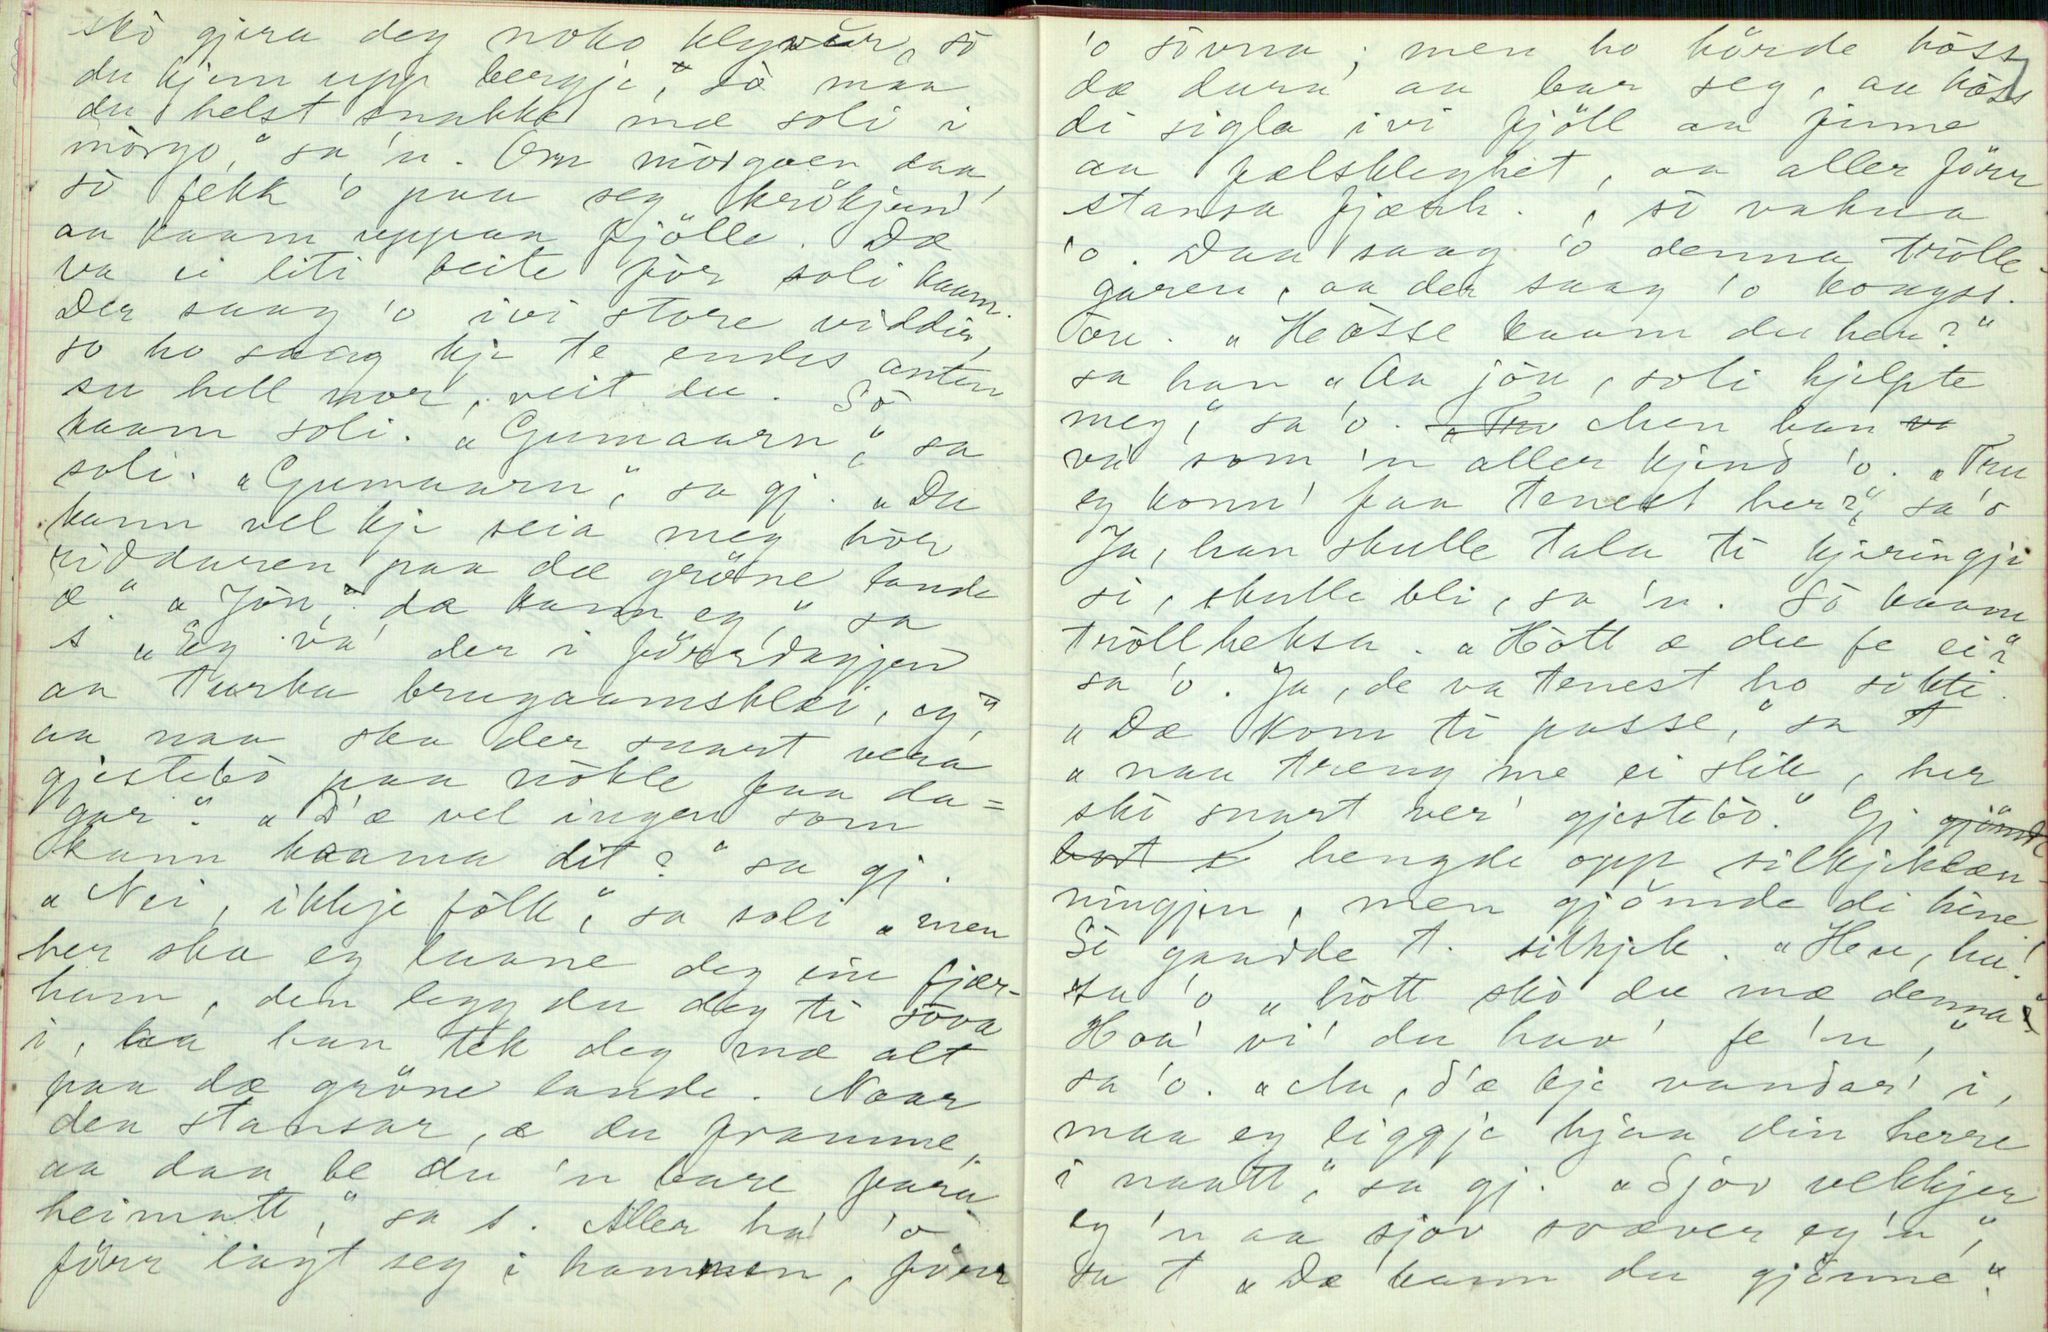 skò gjera deg noko klyvur, sò
du kjem upp bergje", "sò maa
du helst snakke mæ soli i
mòrgo," sa 'n. Om mòrgoen daa,
sò fekk 'o paa seg krökjun'
aa kaam uppaa fjölle. Dæ
va ei liti beite för soli kaam.
Der saag 'o ivi store viddir,
so ho saag kje te endes anten
su hell nor, veit du. Sò
kaam soli. "Gumaarn," sa
soli. "Gumaarn", sa gj. "Du
kann vel kje seia meg hör
riddaren paa dæ gröne lande
æ." "Jön, dæ kann eg," sa
s "Eg va' der i förridagjen
aa turka brugaamsklæi, eg,"
aa naa ska der snart vera
gjestebò paa nökle faa da=
gar". "D'æ vel ingen som
kann kaama dit?" sa gj.
"Nei, ikkje fòlk", sa soli "men
her ska eg laane deg ein fjær-
ham, den legg du deg ti sòva
i, aa han tek deg mæ alt
paa dæ gröne lande. Naar
den stansar, æ du framme,
aa daa be du 'n bare fara
heimatt," sa s. Aller ha' 'o
förr lagt seg i hammen, förr
'o sòvna; men ho hörde höss
dæ dura' aa bar seg, aa höss
di sigla ivi fjöll aa finne
aa fælsklighet, aa aller förr
stansa fjæsh., sò vakna
'o. Daa saag 'o denna trölle-
garen, aa der saag 'o kongss.
òre. "Hòsse kaam du her?"
sa han "Aa jön, soli hjelpte
meg," sa 'o. Men han
va' som 'n aller kjend 'o. "Tru
eg konn' faa tenest her?", sa 'o
Ja, han skulle tala ti kjæringji
si, skulle bli, sa 'n. Sò kaam
tröllheksa. "Hòtt æ du fe ei?"
sa 'o. Ja, de va tenest ho sökte.
"Dæ kom ti passe," sa t
"naa treng me ei slik, her
skò snart ver' gjestebò." Gj gjömde
bort s hengde opp silkjeklæn-
ningjen, men gjömde di hine.
Sò gaadde t. silkjek. "Hu, hu!
sa 'o "hòtt skò du mæ denna?"
Hoa' vi' du hav' fe 'n,"
sa 'o. "Aa, d'æ kje vandar' i,
maa eg liggje hjaa din herre
i naatt," sa gj. "Sjøv vekkjer
eg 'n aa sjøv svæver eg 'n",
sa t "Dæ kann du gjönne".